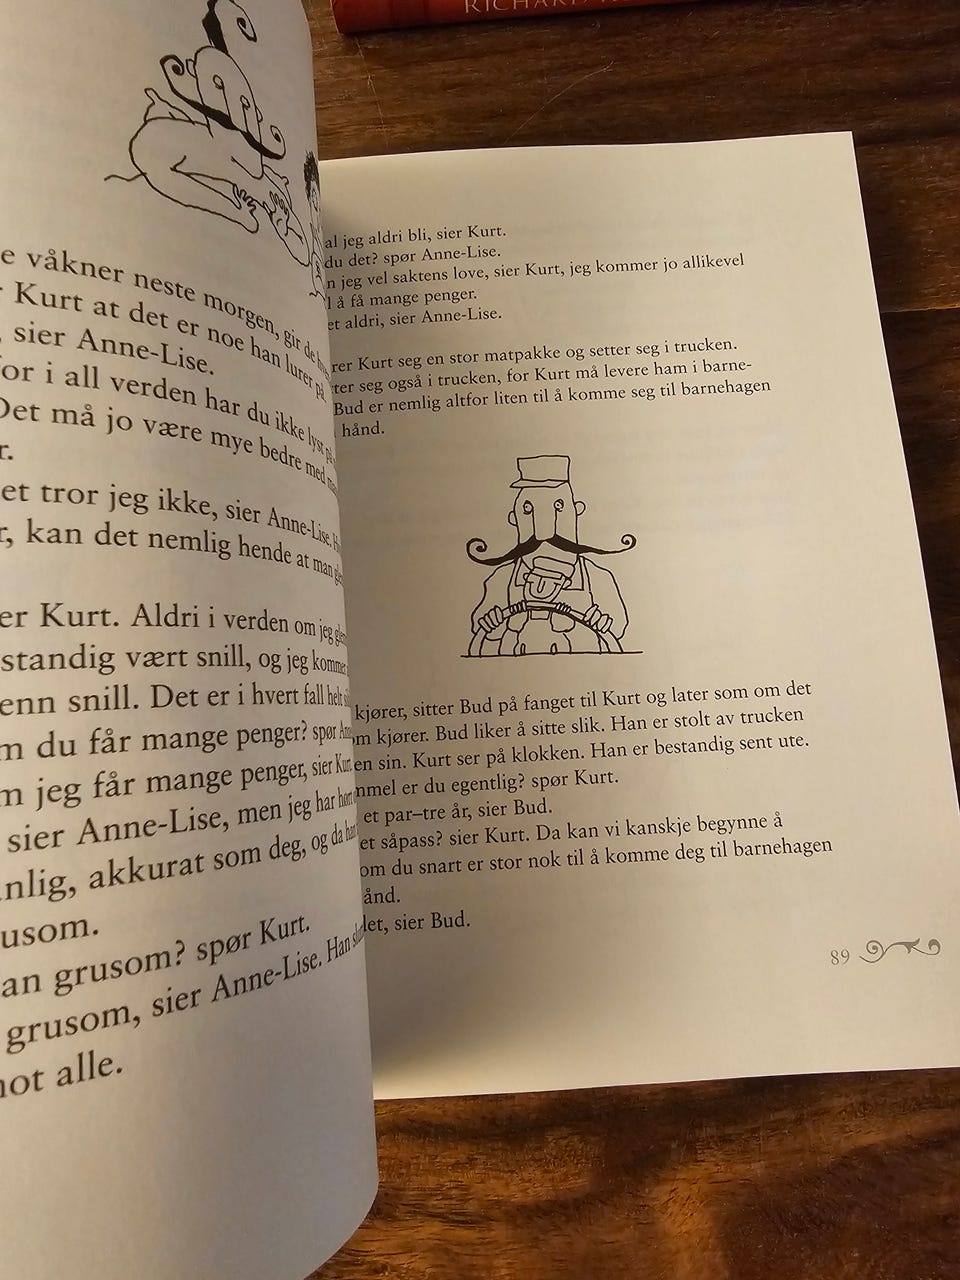 RICHARD
e våkner neste morgen, gir de
Kurt at det er noe han lurer på
, sier Anne-Lise.
or i all verden har du ikke lyst på
Det må jo være mye bedre med
r.
et tror jeg ikke, sier Anne-Lise.
r, kan det nemlig hende at man
er Kurt. Aldri i verden om jeg
standig vært snill, og jeg kommer
enn snill. Det er i hvert fall helt
m du får mange penger? spør
m jeg får mange penger, sier Kurt.
sier Anne-Lise, men jeg har hørt
nlig, akkurat som deg, og da
usom.
an grusom? spør Kurt.
grusom, sier Anne-Lise. Han
not alle.
al jeg aldri bli, sier Kurt.
du det? spør Anne-Lise.
n jeg vel saktens love, sier Kurt, jeg kommer jo allikevel
l å få mange penger.
et aldri, sier Anne-Lise.
rer Kurt seg en stor matpakke og setter seg i trucken.
ter seg også i trucken, for Kurt må levere ham i barne-
Bud er nemlig altfor liten til å komme seg til barnehagen
hånd.
kjører, sitter Bud på fanget til Kurt og later som om det
om kjører. Bud liker å sitte slik. Han er stolt av trucken
en sin. Kurt ser på klokken. Han er bestandig sent ute.
mmel er du egentlig? spør Kurt.
et par–tre år, sier Bud.
et såpass? sier Kurt. Da kan vi kanskje begynne å
om du snart er stor nok til å komme deg til barnehagen
ånd.
let, sier Bud.
89